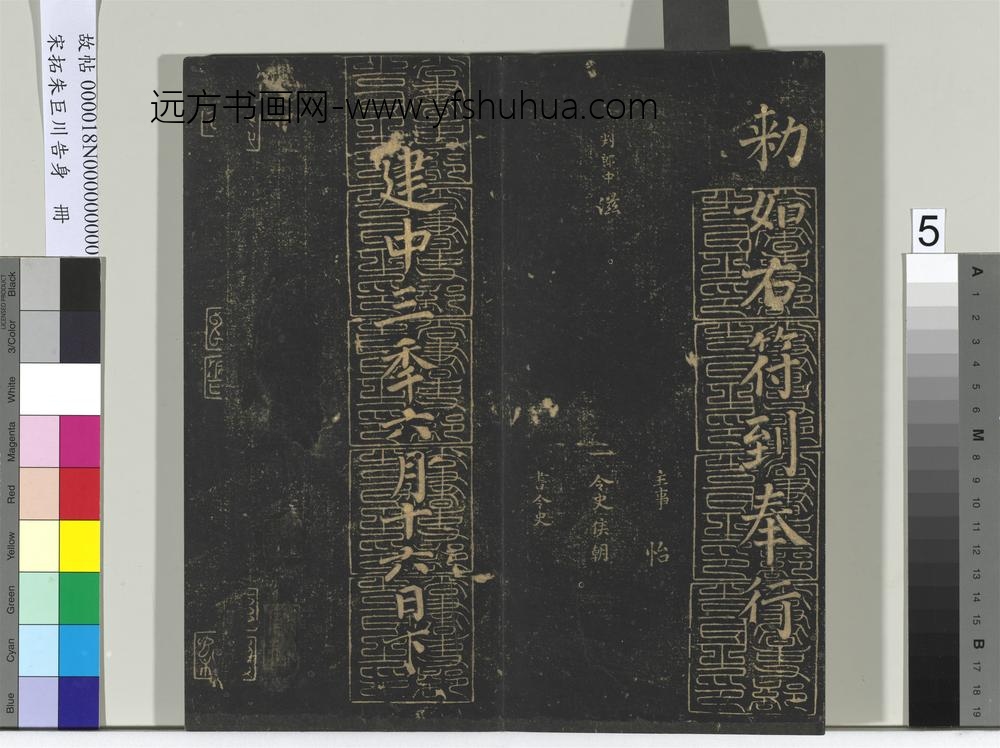 故帖 000018N000000000
宋拓朱巨川告身 冊
远方书画网-www.yfshuhua.com
勑如右符到奉行
主事 怡
判郎中 滋
令史 侯朝
書令史
建中三季六月十六日下
5
LICENSED PRODUCT
Black
3/Color
White
Magenta
Red
Yellow
Green
Cyan
Blue
A
1
2
3
4
5
6
M
8
9
10
11
12
13
14
15
B
17
18
19